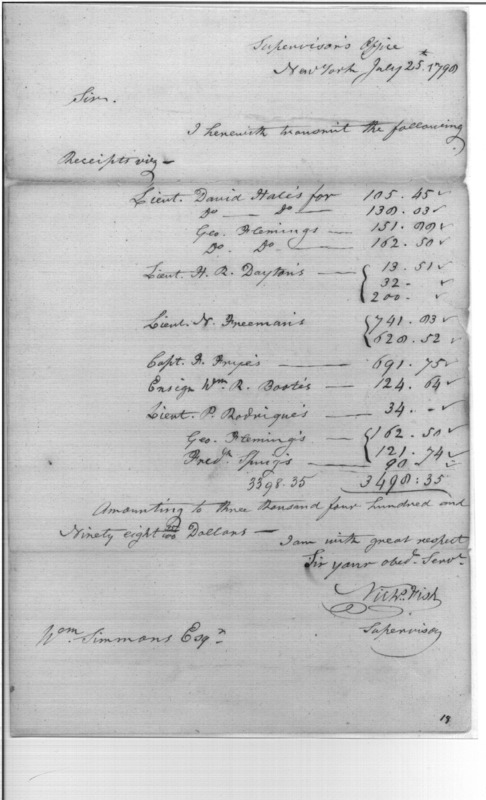 Supervisor's Office
New York July 25th 1798
Sir.
I herewith transmit the following
Receipts viz —
Lieut. David Hale's for 105.45
Do — Do — 138.83
Geo. Fleming's — 151.88
Do. Do. — 162.50
Lieut. H. R. Dayton's — 13.51
32.-
200.-
Lieut. N. Freeman's 741.83
628.52
Capt. F. Frye's — 691.75
Ensign Wm. R. Boote's — 124.64
Lieut. P. Rodrigue's — 34.-
Geo. Fleming's — 162.50
Fred. — 121.74
90
3398.35 3498:35
Amounting to three thousand four hundred and
Ninety eight 35/100 Dollars —
I am with great respect
Sir your obed. Servt.
Nichs. Fish
Supervisor
Wm Simmons Esqr.
13